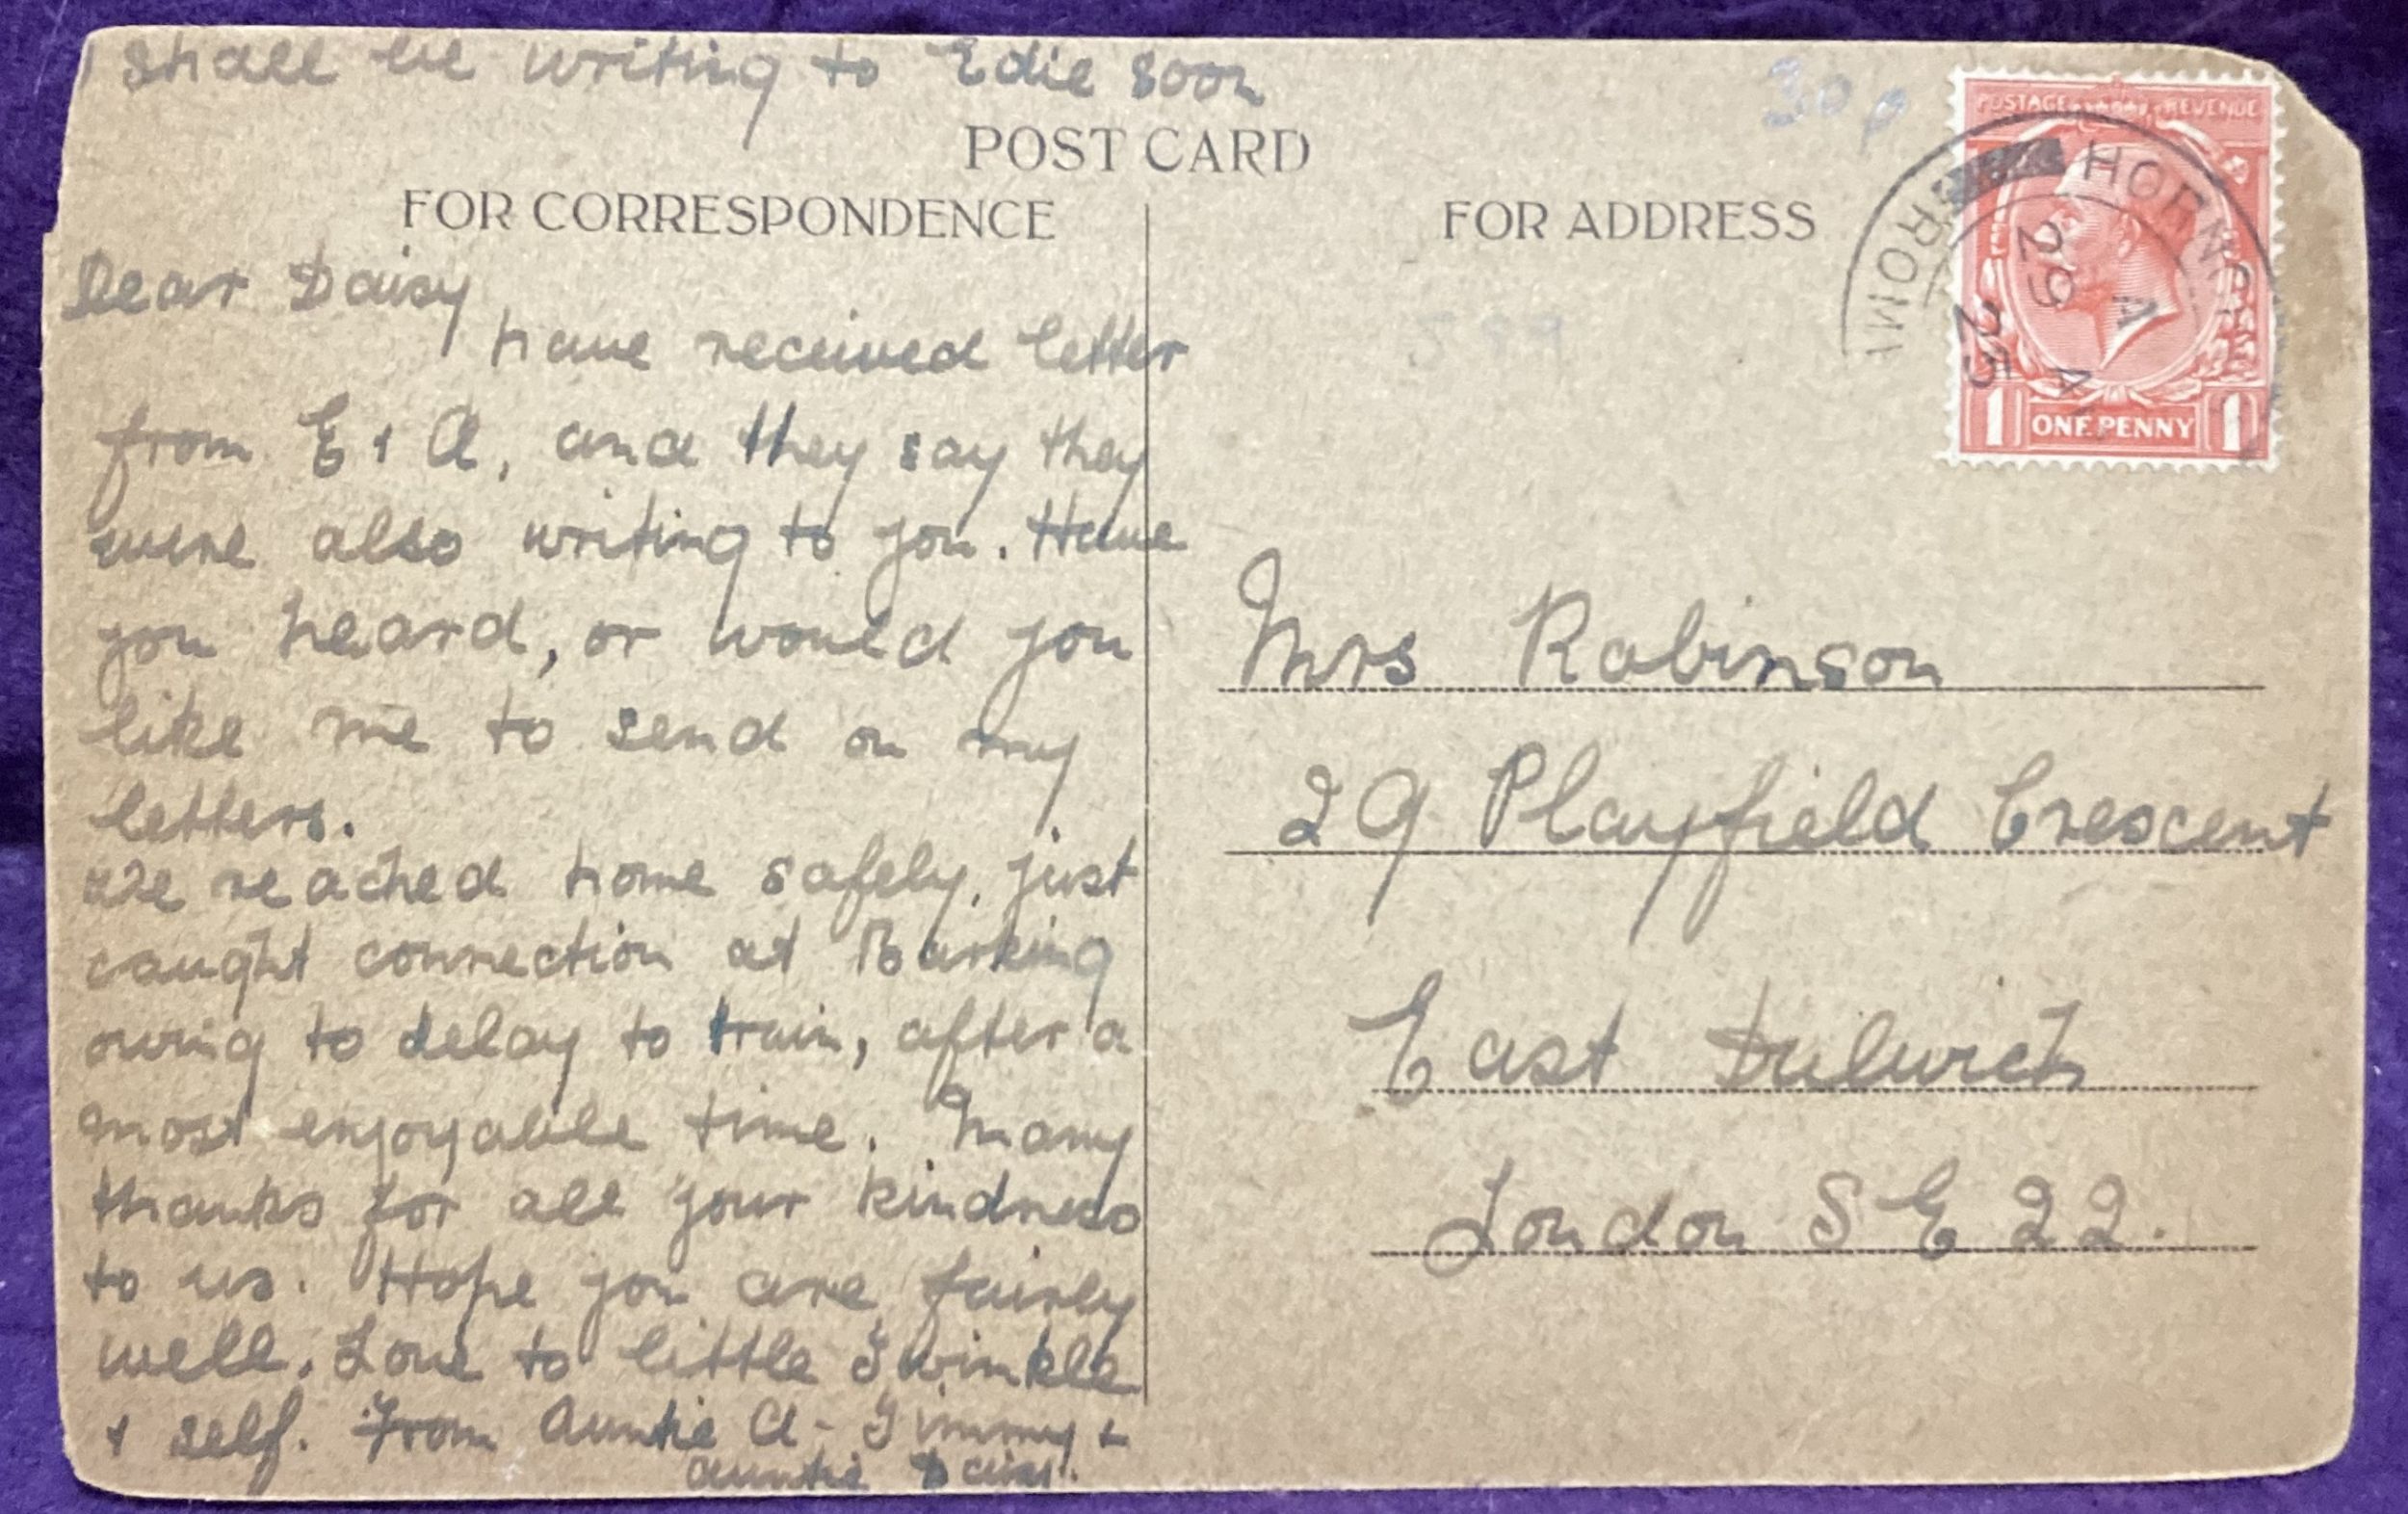 I shall be writing to Edie soon
POST CARD
FOR CORRESPONDENCE
Dear Daisy
have received letter
from E & A, and they say they
were also writing to you. Have
you heard, or would you
like me to send on my
letters.
We reached home safely, just
caught connection at Barking
owing to delay to train, after a
most enjoyable time. Many
thanks for all your kindness
to us. Hope you are fairly
well. Love to little Twinkle
& self. From Auntie A - Jimmy &
Auntie Daisy.
30p
FOR ADDRESS
POSTAGE REVENUE
1 ONE PENNY 1
ROM
HORNCH
29 A
25
Mrs Robinson
29 Playfield Crescent
East Dulwich
London S E 22.